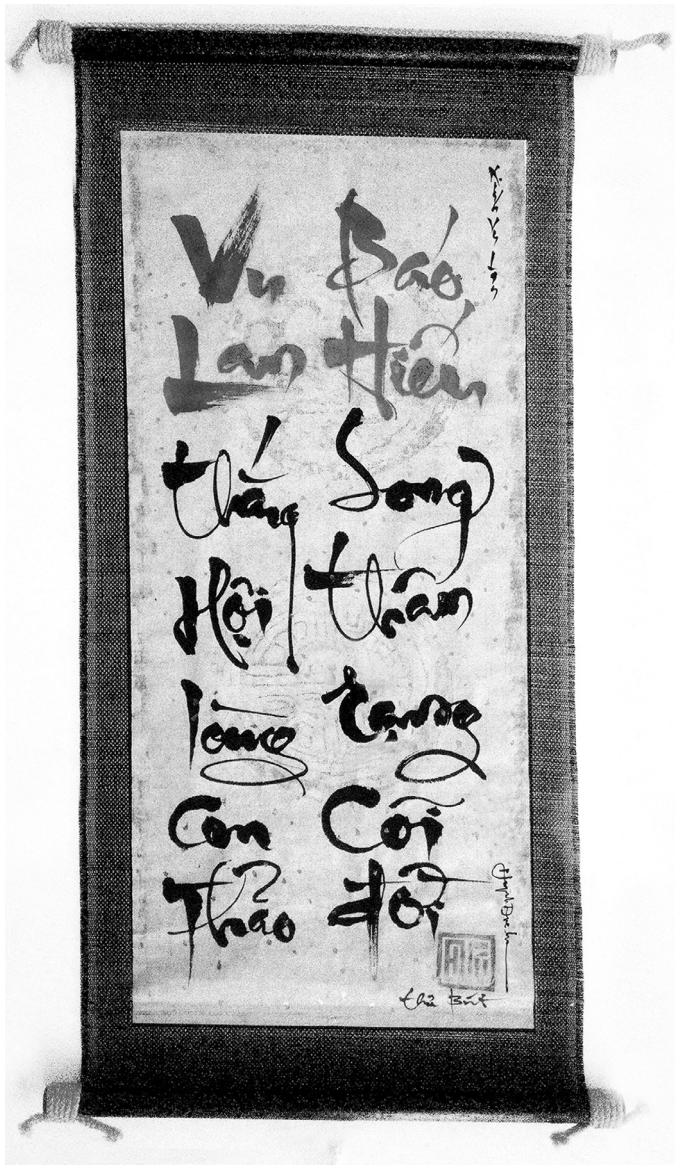 Vu
Lan
thắng
Hội
lòng
Con
Thảo
Báo
Hiếu
Song
thân
rạng
Cõi
Đời
Vu Lan
thủ Bút